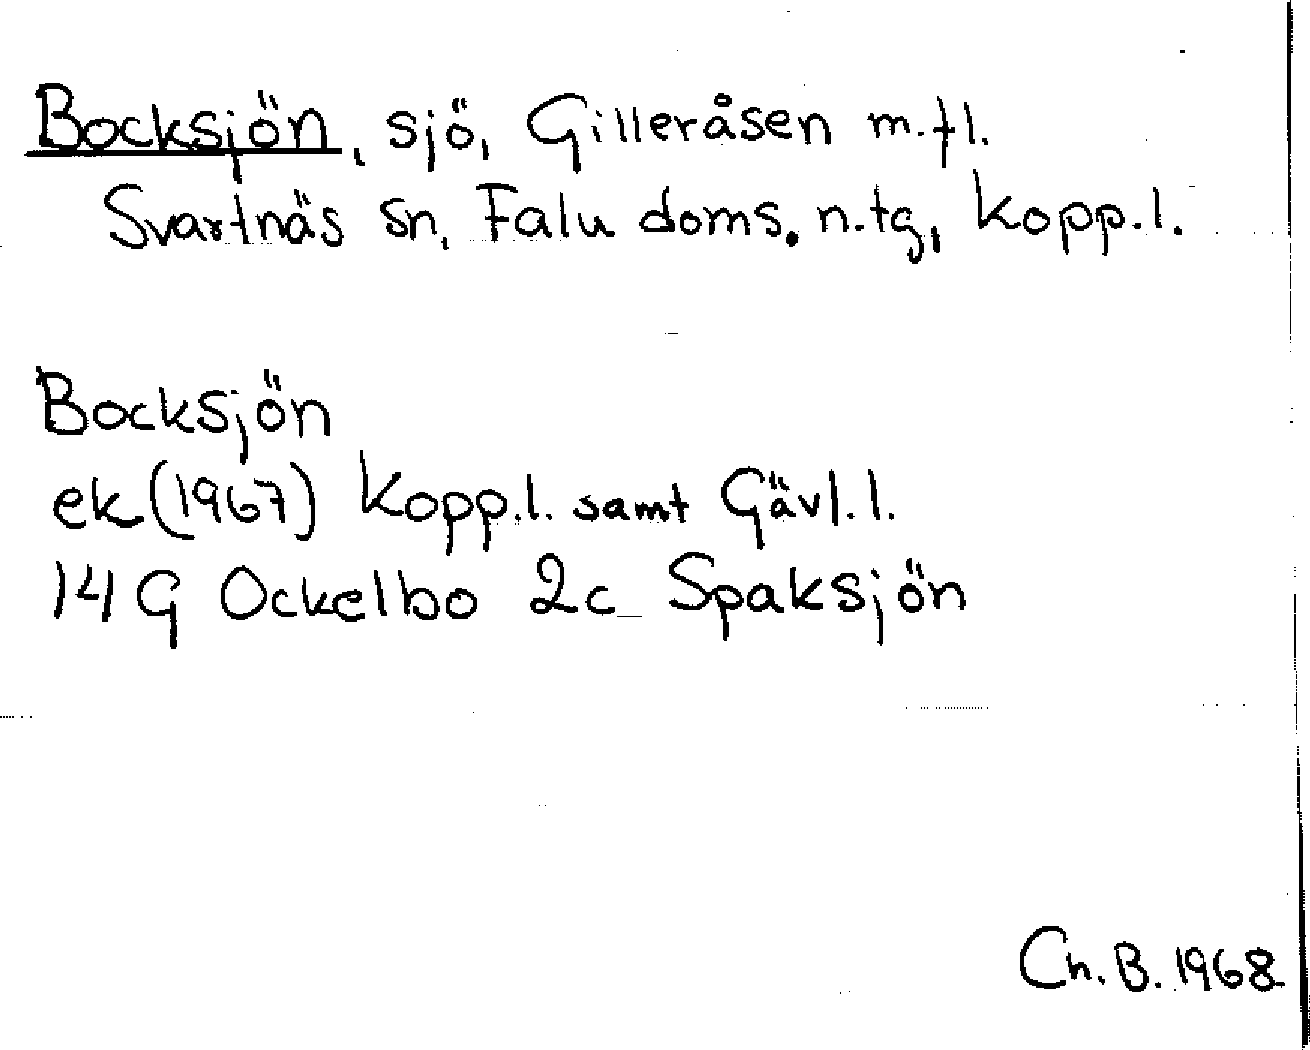 Bocksjön, sjö, Gilleråsen m.fl.
Svartnäs sn, Falu doms. n.tg, Kopp.l.
Bocksjön
ek (1967) Kopp.l. samt Gävl.l.
14 G Ockelbo 2c Spaksjön
Ch. B. 1968